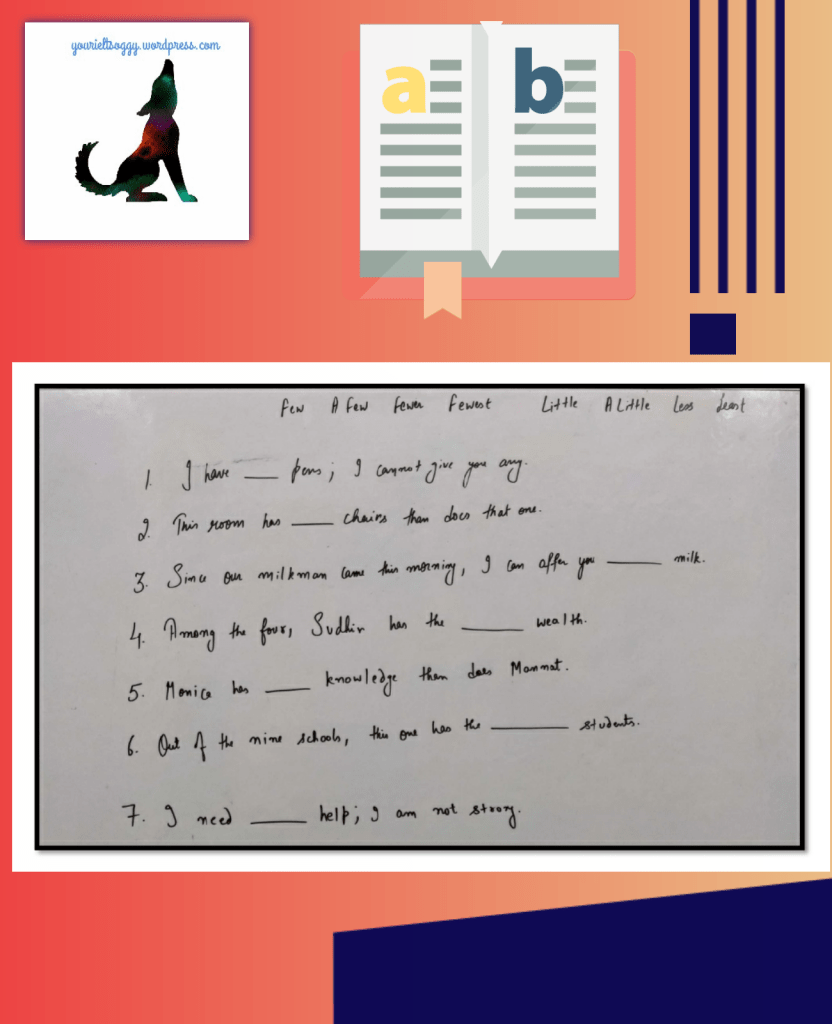 yourieltsoggy.wordpress.com
a b
Few A Few Fewer Fewest Little A Little Less Least
1. I have ___ pens; I cannot give you any.
2. This room has ___ chairs than does that one.
3. Since our milkman came this morning, I can offer you ___ milk.
4. Among the four, Sudhir has the ___ wealth.
5. Monica has ___ knowledge than does Mannat.
6. Out of the nine schools, this one has the ___ students.
7. I need ___ help; I am not strong.